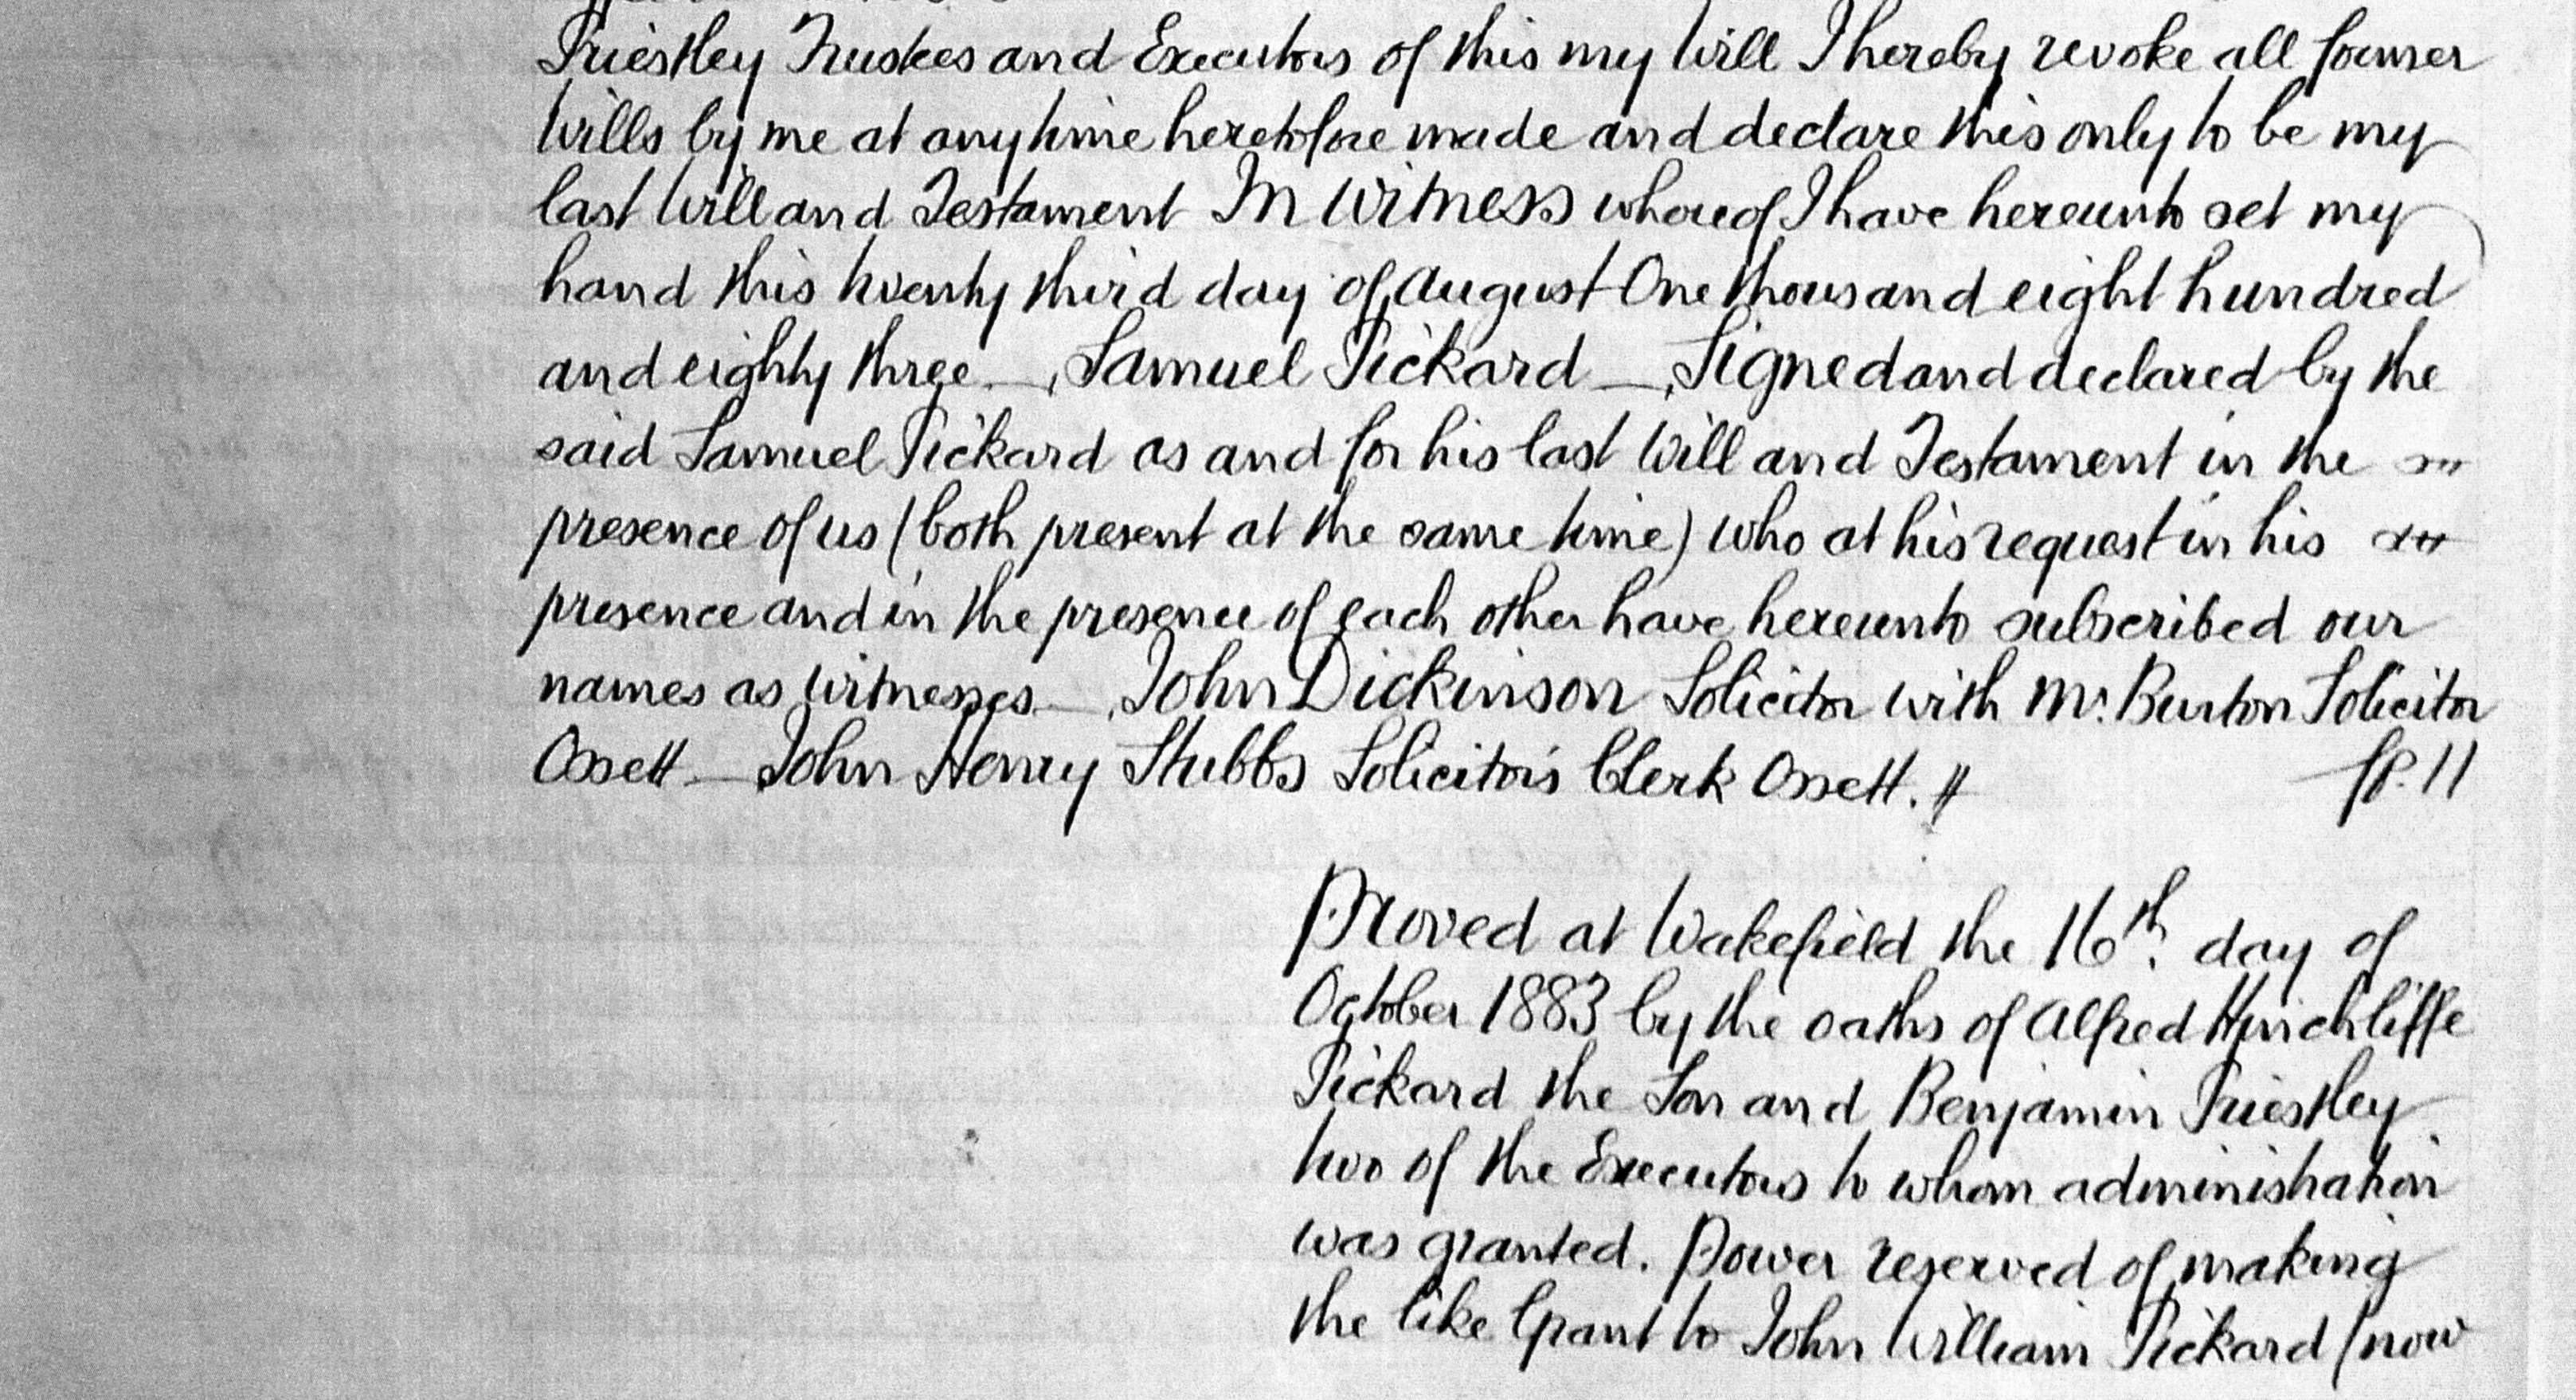 Priestley Trustees and Executors of this my Will I hereby revoke all former
Wills by me at anytime heretofore made and declare this only to be my
last Will and Testament In Witness whereof I have hereunto set my
hand this twenty third day of August One thousand eight hundred
and eighty three — Samuel Pickard — Signed and declared by the
said Samuel Pickard as and for his last Will and Testament in the
presence of us (both present at the same time) who at his request in his
presence and in the presence of each other have hereunto subscribed our
names as witnesses — John Dickinson Solicitor with Mr. Burton Solicitor
Ossett — John Henry Stubbs Solicitor's Clerk Ossett. //
fp. 11
Proved at Wakefield the 16th. day of
October 1883 by the oaths of Alfred Hinchliffe
Pickard the Son and Benjamin Priestley
two of the Executors to whom administration
was granted. Power reserved of making
the like Grant to John William Pickard (now